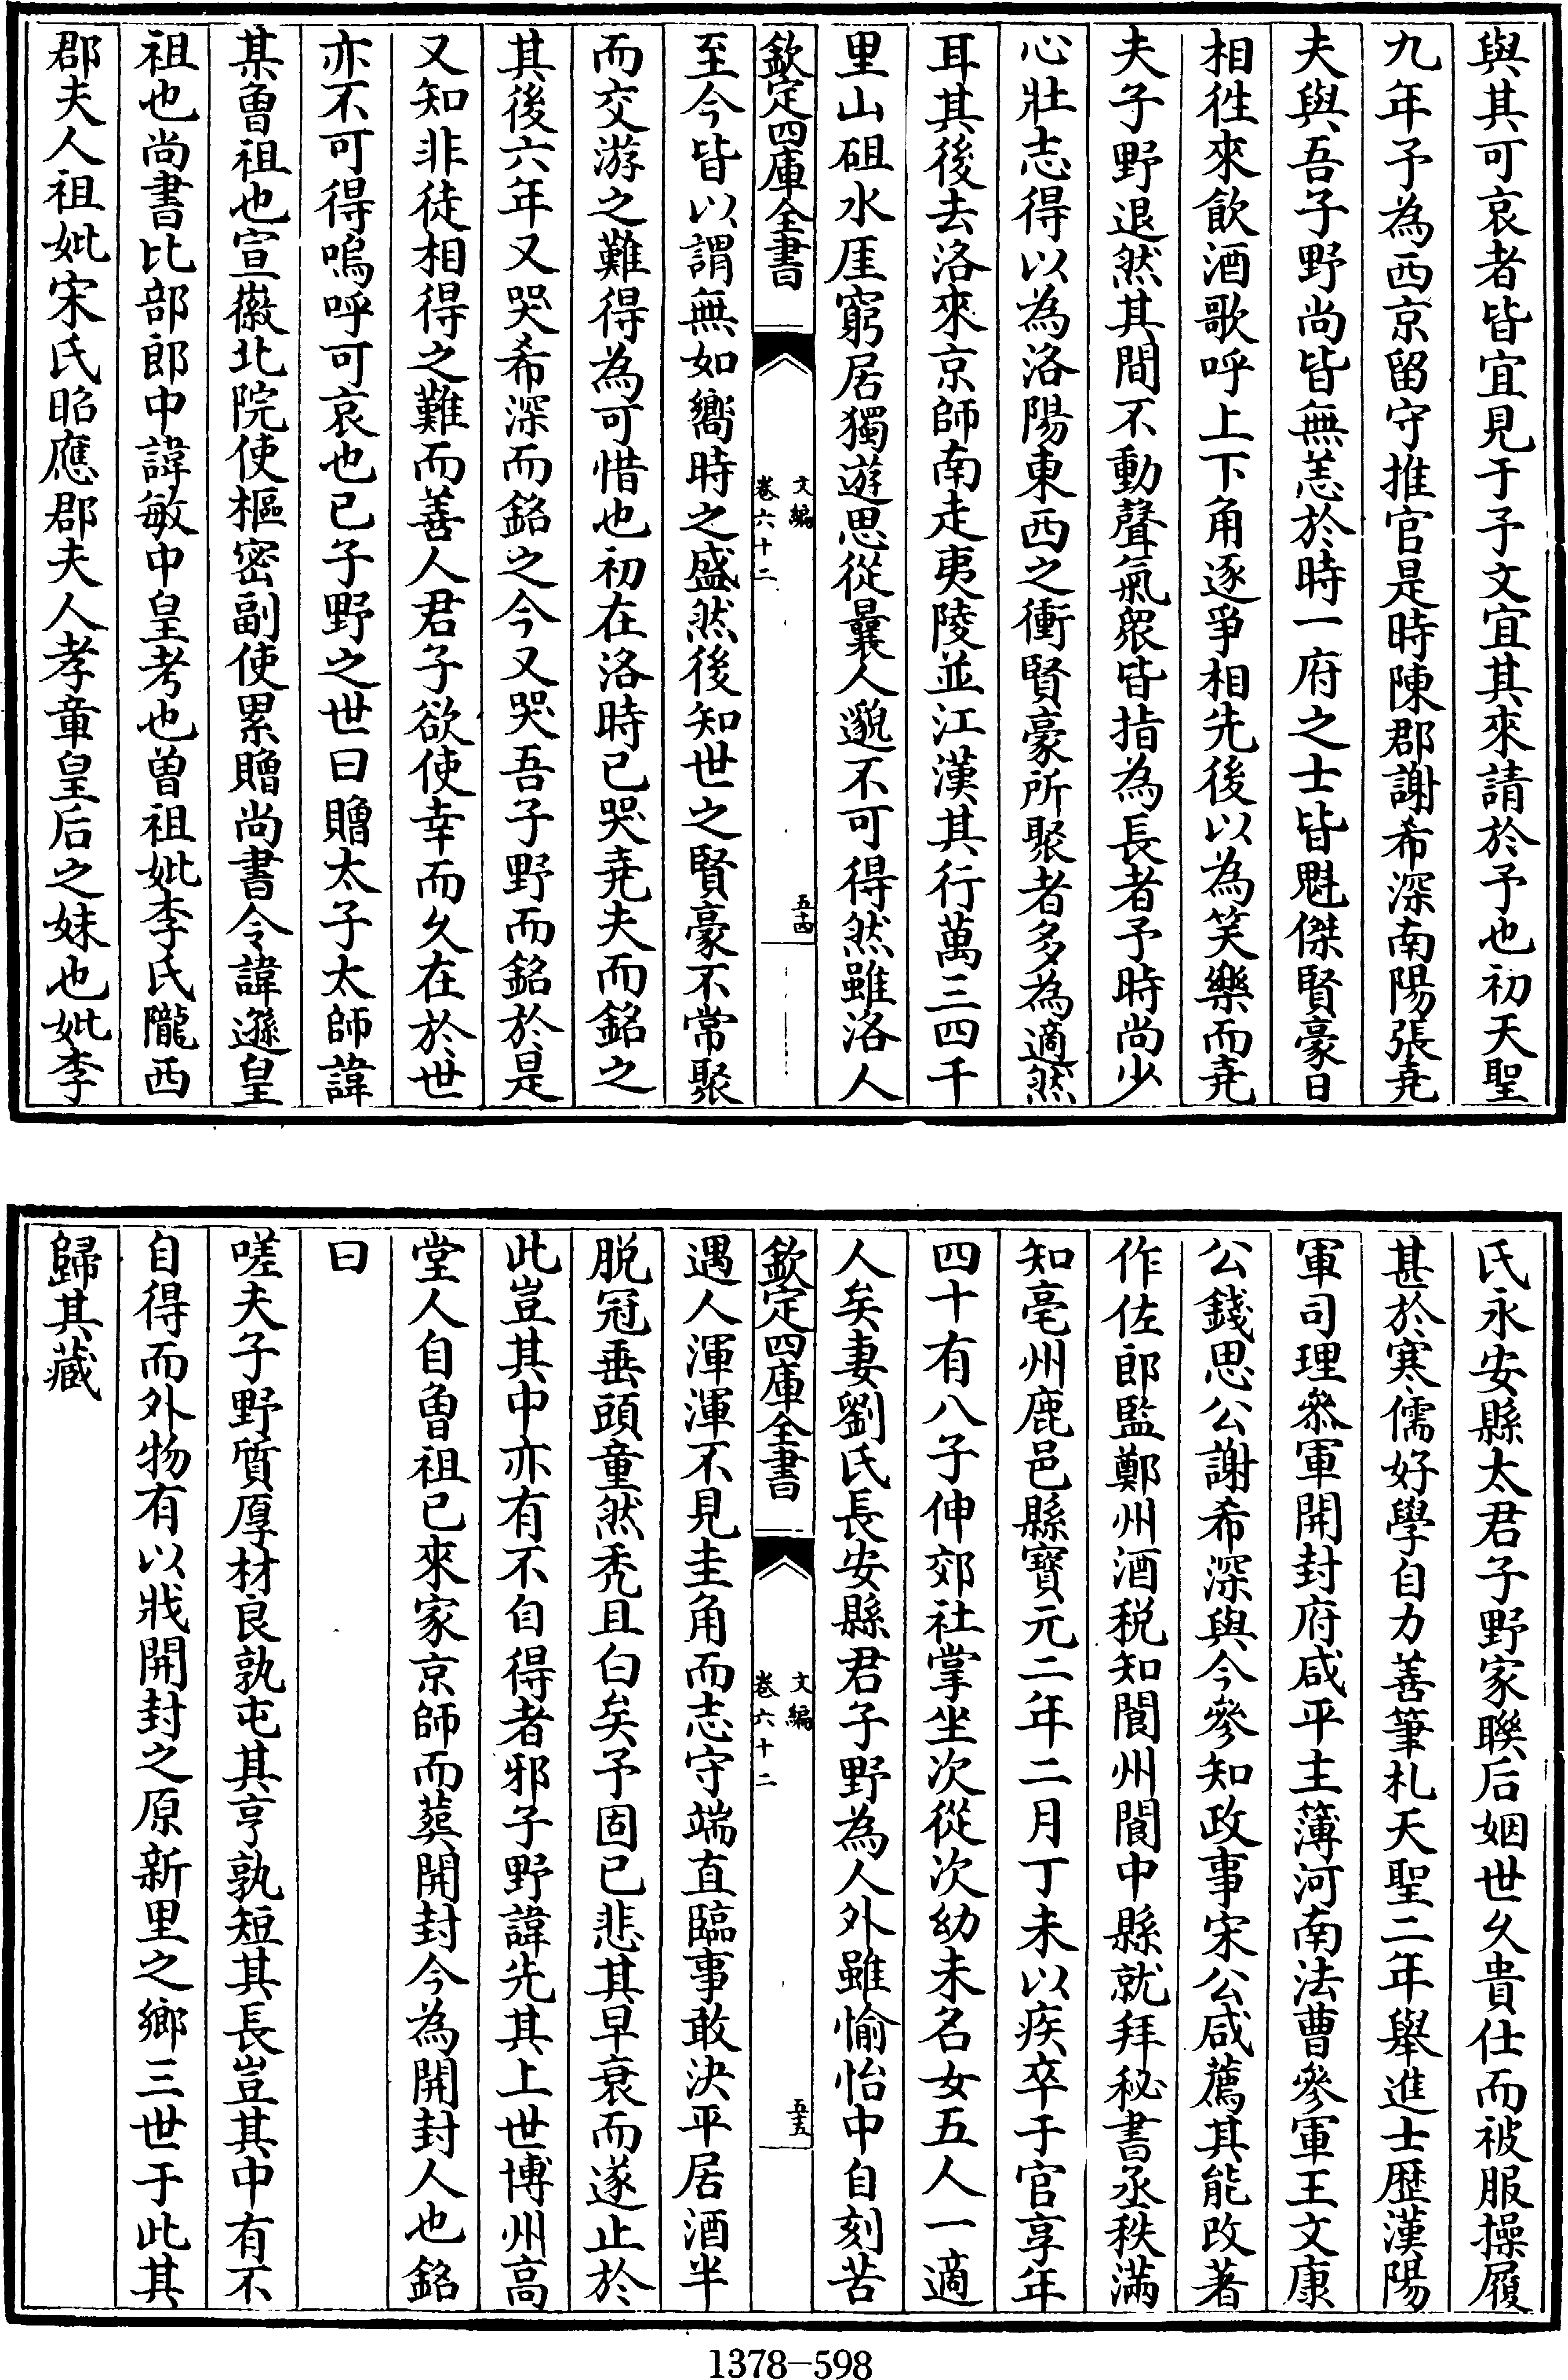 與其可哀者皆宜見于予文宜其來請於予也初天聖
九年予為西京留守推官是時陳郡謝希深南陽張堯
夫與吾子野尚皆無恙於時一府之士皆魁傑賢豪日
相徃來飲酒歌呼上下角逐爭相先後以為笑樂而堯
夫子野退然其間不動聲氣衆皆指為長者予時尚少
心壯志得以為洛陽東西之衝賢豪所聚者多為適然
耳其後去洛來京師南走夷陵並江漢其行萬三四千
里山砠水厓窮居獨遊思從曩人邈不可得然雖洛人
欽定四庫全書
文編
卷六十二
五十四
至今皆以謂無如嚮時之盛然後知世之賢豪不常聚
而交游之難得為可惜也初在洛時已哭堯夫而銘之
其後六年又哭希深而銘之今又哭吾子野而銘於是
又知非徒相得之難而善人君子欲使幸而久在於世
亦不可得嗚呼可哀也已子野之世曰贈太子太師諱
某曾祖也宣徽北院使樞密副使累贈尚書令諱遜皇
祖也尚書比部郎中諱敏中皇考也曾祖妣李氏隴西
郡夫人祖妣宋氏昭應郡夫人孝章皇后之妹也妣李
氏永安縣太君子野家聯后姻世久貴仕而被服操履
甚於寒儒好學自力善筆札天聖二年舉進士歴漢陽
軍司理叅軍開封府咸平主簿河南法曹參軍王文康
公錢思公謝希深與今參知政事宋公咸薦其能改著
作佐郎監鄭州酒税知閬州閬中縣就拜秘書丞秩滿
知亳州鹿邑縣寶元二年二月丁未以疾卒于官享年
四十有八子伸郊社掌坐次從次幼未名女五人一適
人矣妻劉氏長安縣君子野為人外雖愉怡中自刻苦
欽定四庫全書
文編
卷六十二
五十五
遇人渾渾不見圭角而志守端直臨事敢決平居酒半
脱冠垂頭童然禿且白矣予固已悲其早衰而遂止於
此豈其中亦有不自得者邪子野諱先其上世博州高
堂人自曾祖已來家京師而葬開封今為開封人也銘
曰
嗟夫子野質厚材良孰屯其亨孰短其長豈其中有不
自得而外物有以戕開封之原新里之鄉三世于此其
歸其藏
1378-598